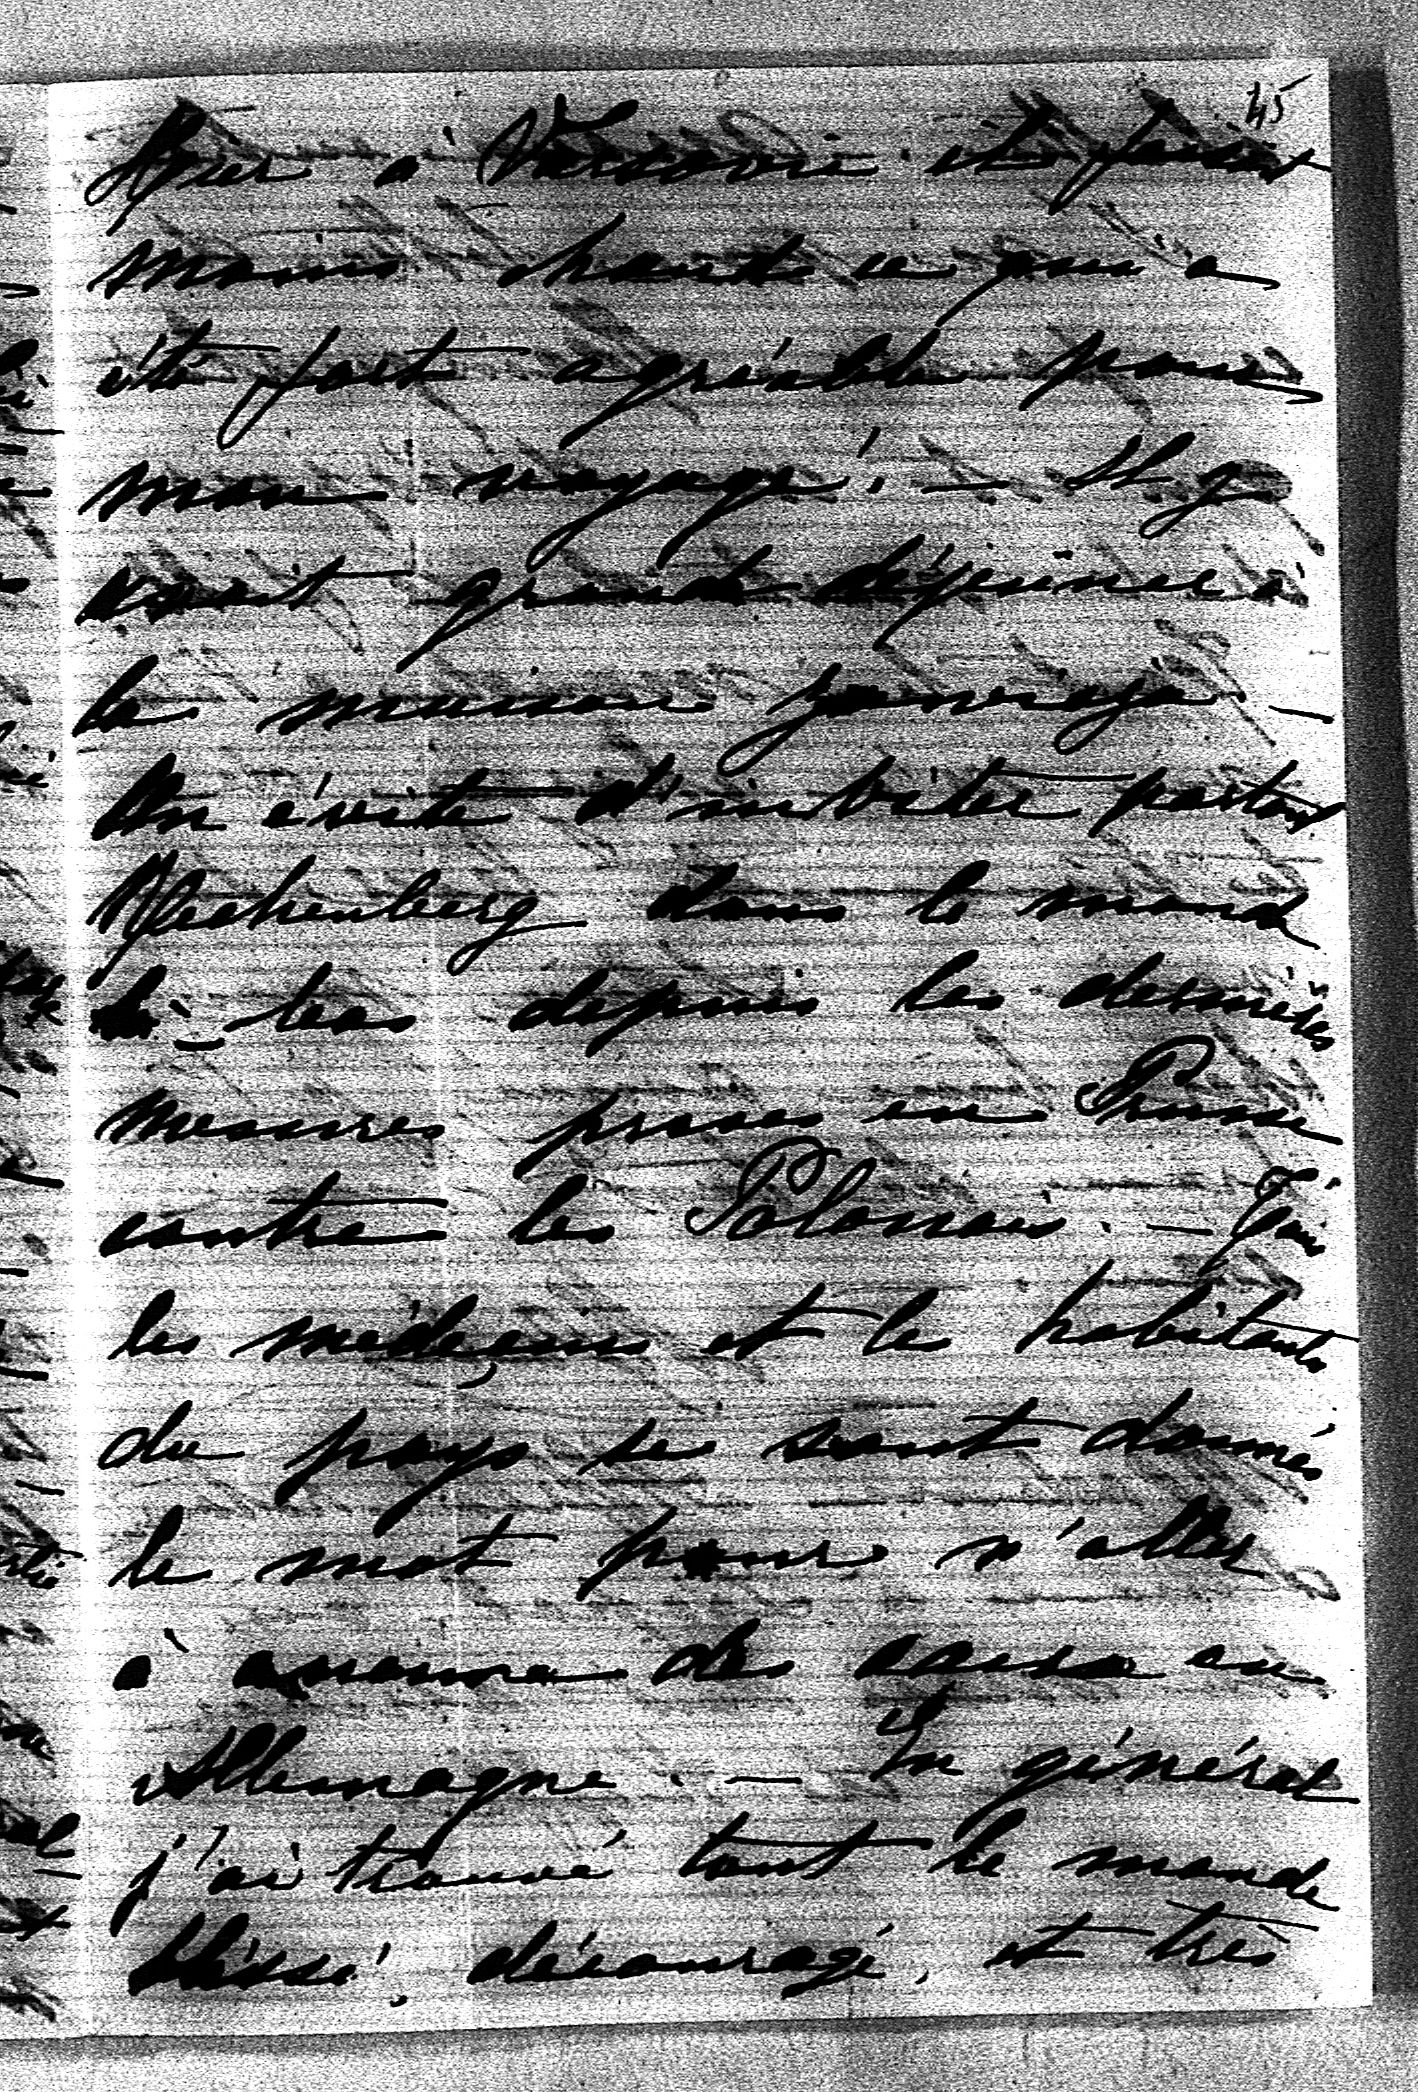 45
Hier à Varsovie il faisait
moins chaud ce qui a
été fort agréable pour
mon voyage. — Il y
avait grand déjeuner à
la maison
On évite d'inviter partout
Rechenberg dans le monde
de - tess depuis les dernières
mesures prises en Prusse
contre les Polonais. —
les médecins et les habitants
du pays se sont donnés
le mot pour n'aller
à aucune des eaux en
Allemagne. — En général
j'ai trouvé tout le monde
blessé, découragé, et très